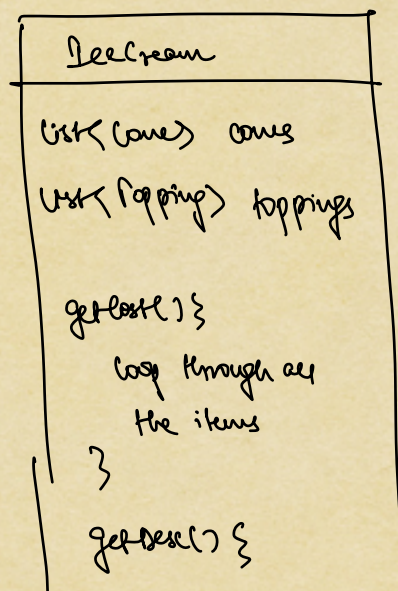 IceCream
List<Cone> cones
List<Topping> toppings
getCost() {
loop through all
the items
}
getDesc() {